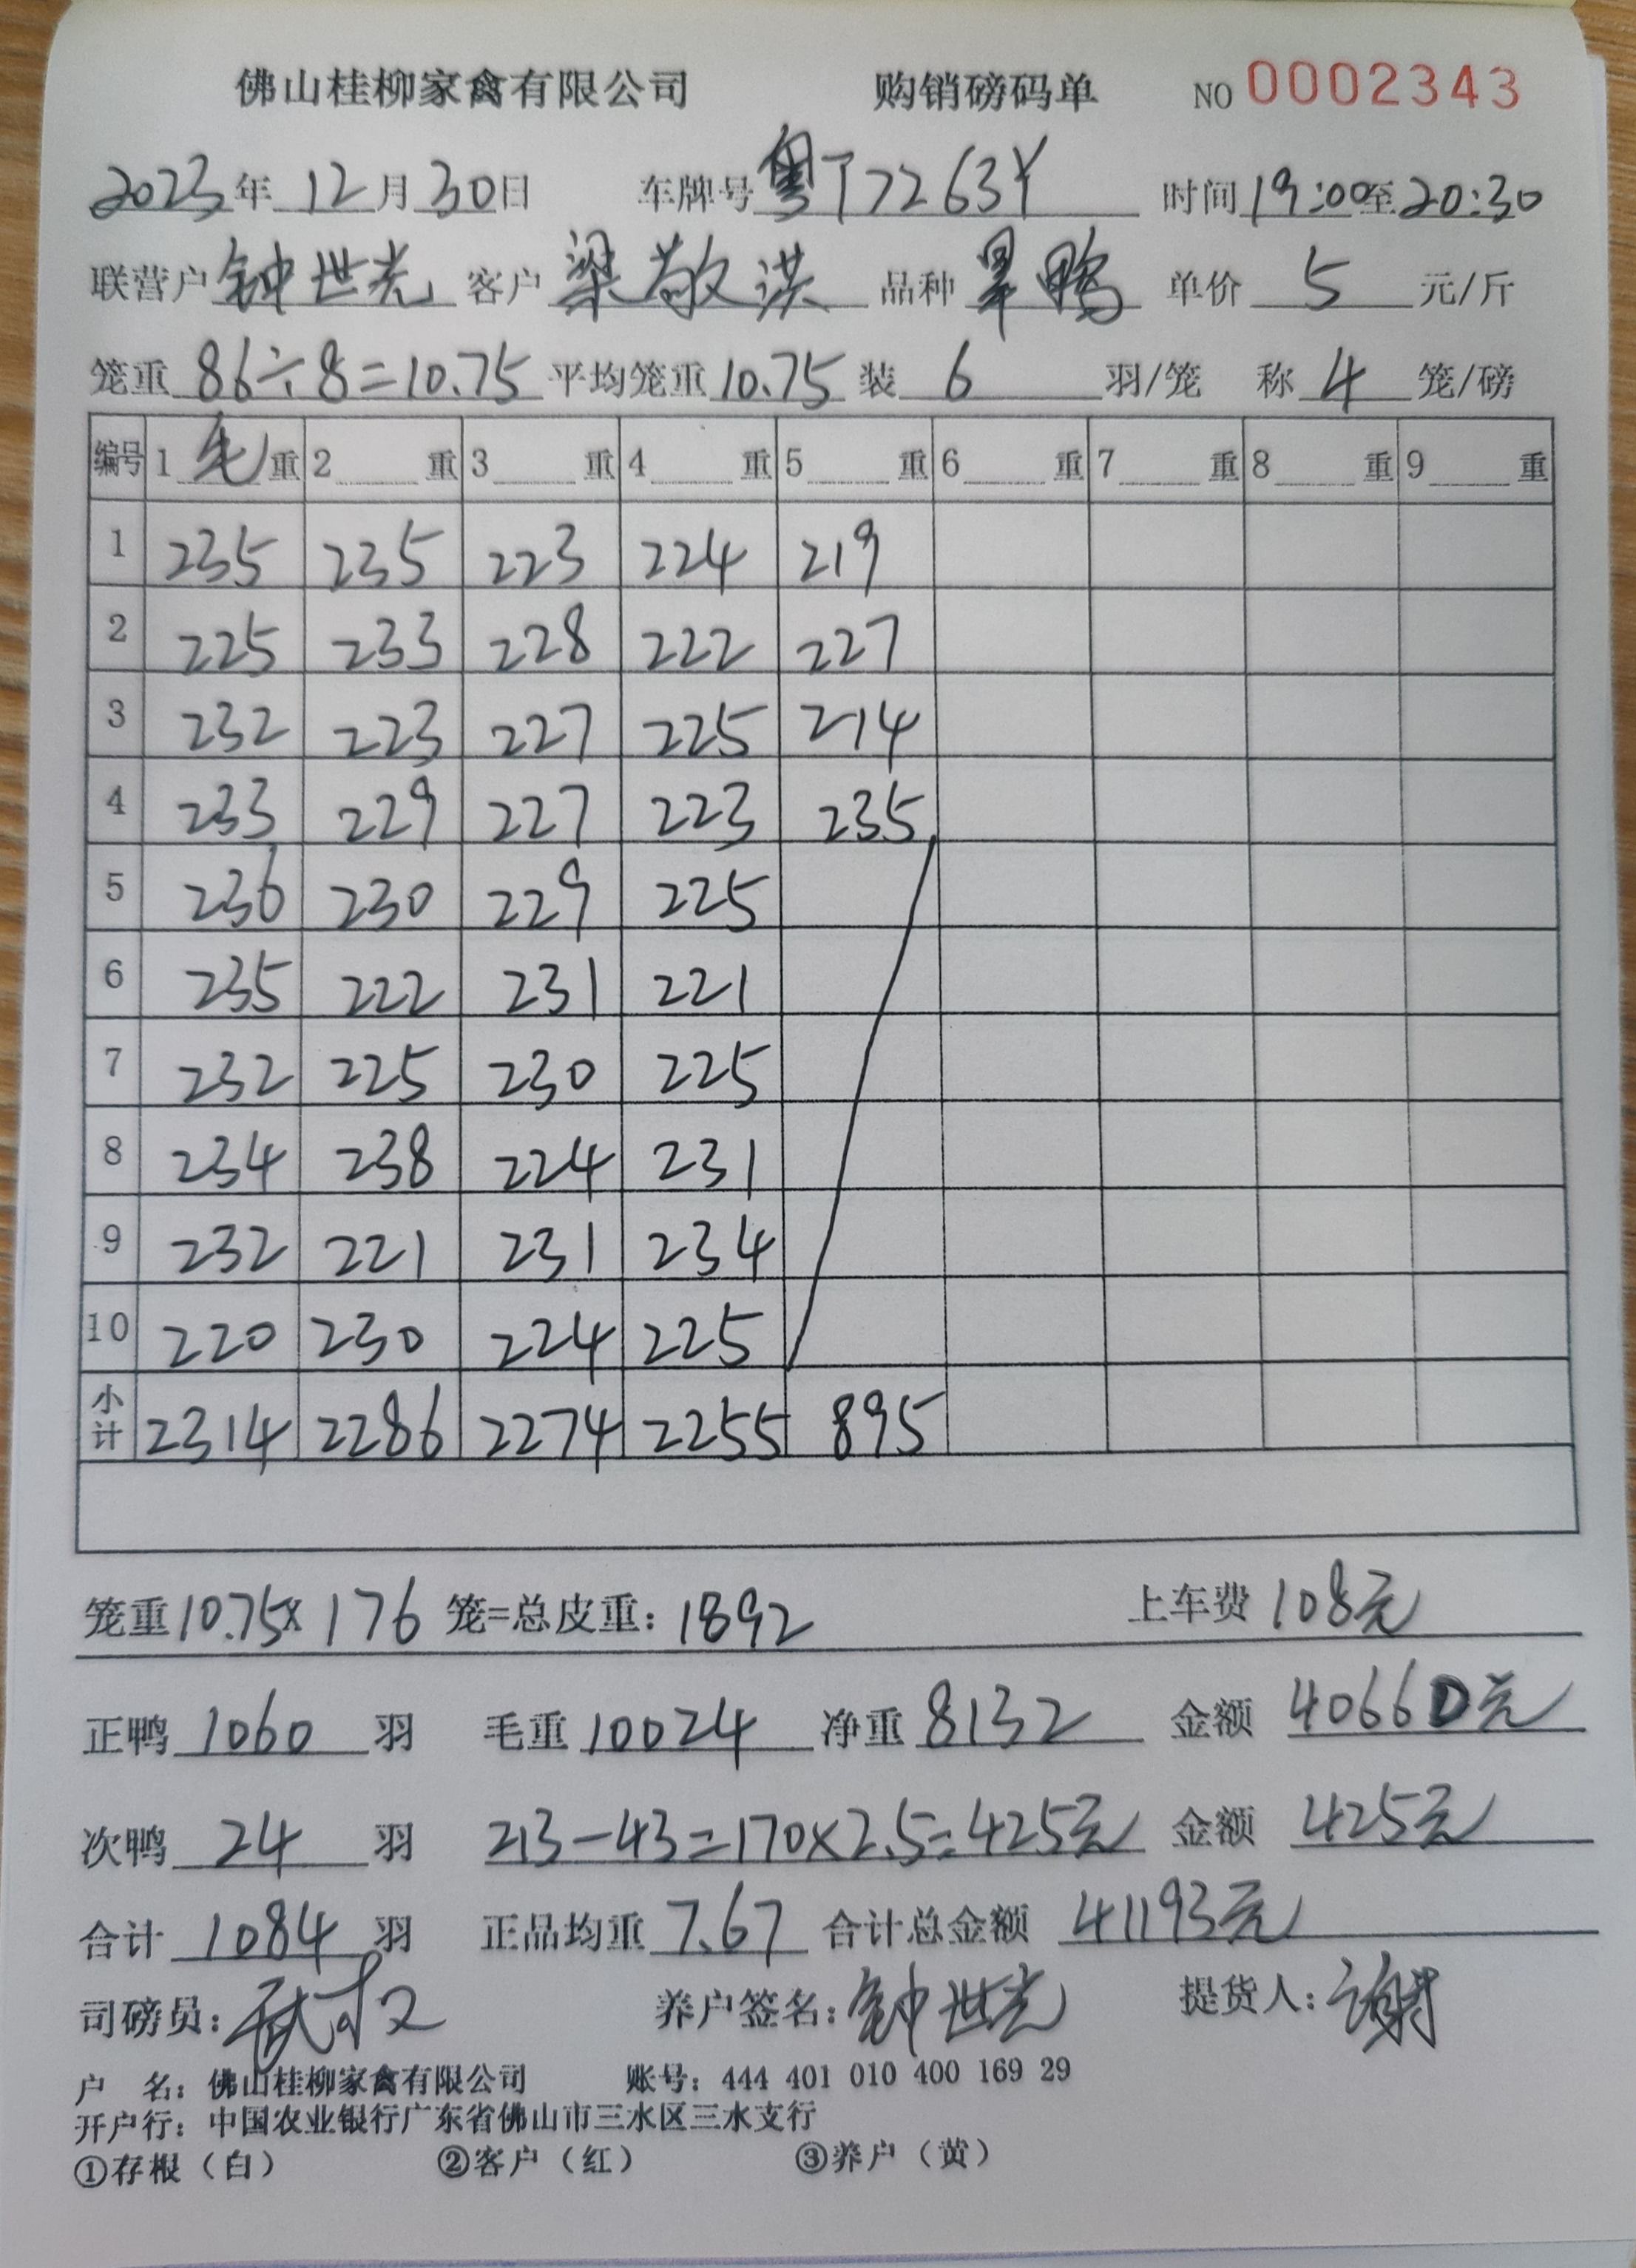 佛山桂柳家禽有限公司 购销磅码单 NO 0002343
2023年12月30日 车牌号 粤T7263Y 时间19:00至20:30
联营户 钟世光 客户 梁敬洪 品种 鸭 单价 5 元/斤
笼重 86÷8=10.75 平均笼重 10.75 装 6 羽/笼 称 4 笼/磅
编号 1 毛 重 2 重 3 重 4 重 5 重 6 重 7 重 8 重 9 重
1 235 235 223 224 219
2 225 233 228 222 227
3 232 223 227 225 214
4 233 229 227 223 235
5 236 230 229 225
6 235 222 231 221
7 232 225 230 225
8 234 238 224 231
9 232 221 231 234
10 220 230 224 225
小计 2314 2286 2274 2255 895
笼重10.75×176 笼=总皮重：1892 上车费 108元
正鸭 1060 羽 毛重 10024 净重 8132 金额 40660元
次鸭 24 羽 213-43=170×2.5=425元 金额 425元
合计 1084 羽 正品均重 7.67 合计总金额 41193元
司磅员： 养户签名：钟世光 提货人：谢
户 名：佛山桂柳家禽有限公司 账号：444 401 010 400 169 29
开户行：中国农业银行广东省佛山市三水区三水支行
①存根（白） ②客户（红） ③养户（黄）